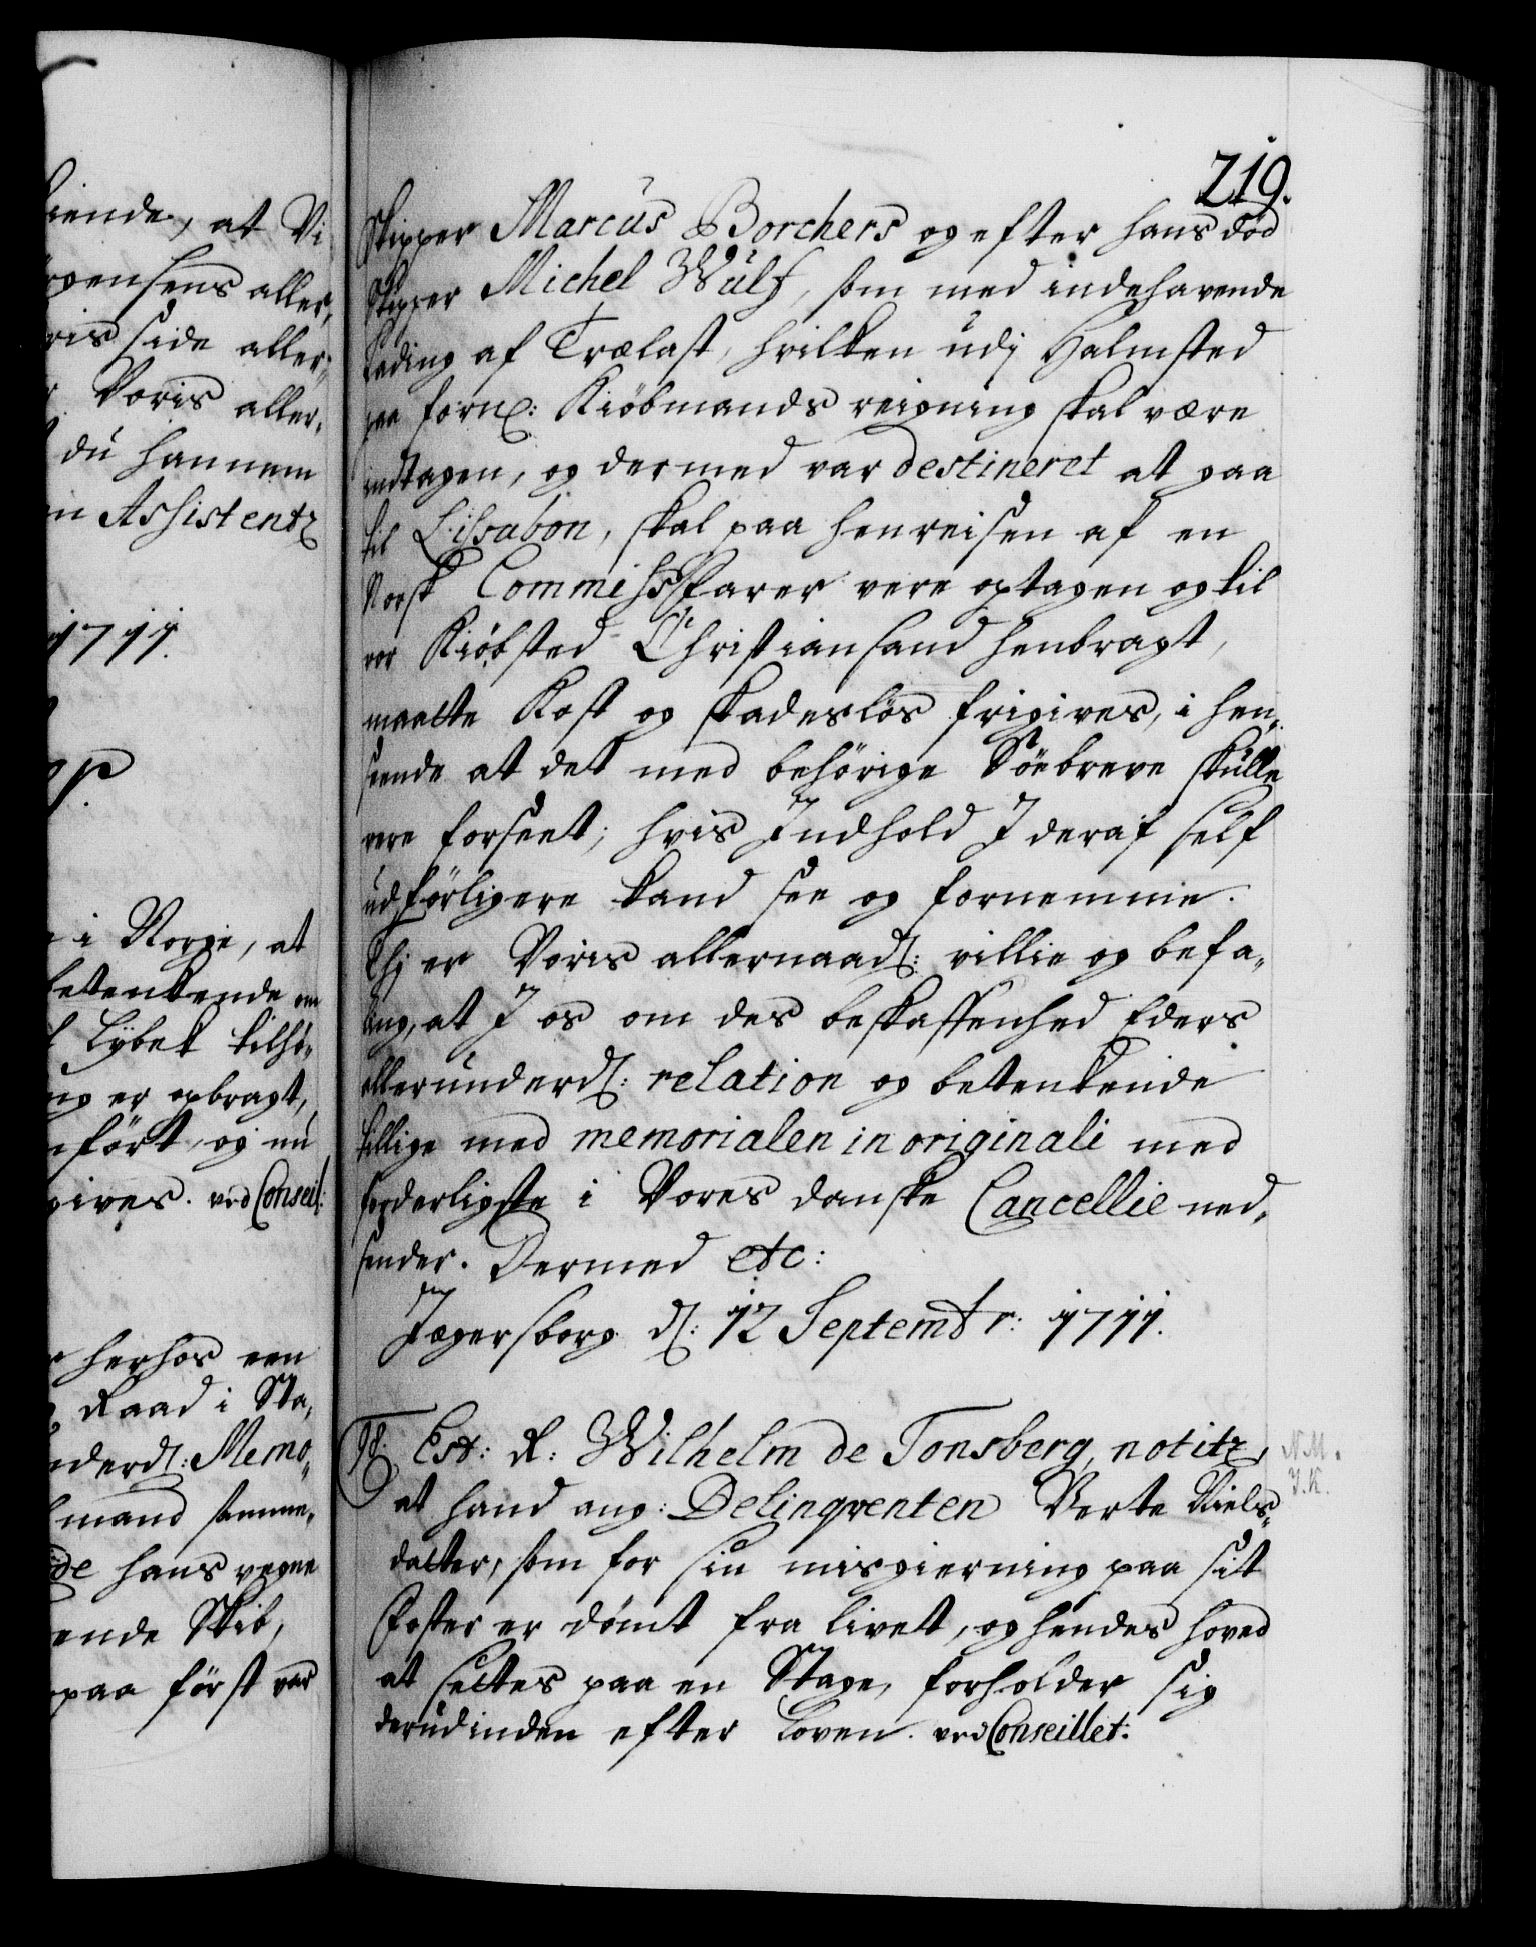 kiende, at Vi
rgensens aller,
ris side aller,
r Voris aller,
du hannem
n Assistentz
1711.
op
i Norge, at
betenkende om
f Lybek tilhø,
ng er opbragt,
nført, og nu
gives. ved Conseil:
r herhos een
Raad i Sta,
nderd: Memo,
mand samme,
de hans vegne
ende Skib,
paa först var
219.
Skipper Marcus Borchers og efter hans död
Skipper Michel Wulf, som med indehavende
Lading af Trælast, hvilken udj Halmsted
paa forne: Kiöbmands reigning skal være
indtagen, og dermed var destineret at gaa
til Lissabon, skal paa henreisen af en
Norsk Commissfarer vere optagen og til
vor Kiöbsted Christiansand henbragt,
maatte Kost og skadeslös frigives, i hen,
seende at det med behörige Söebreve skulle
vere forseet; hvis Indhold I deraf self
udförligere kand see og fornemme.
Thj er Voris allernaad: villie og befa,
ling, at I os om des beskaffenhed Eders
allerunderd: relation og betenkende
tillige med memorialen in originali med
forderligste i Vores danske Cancellie ned,
sender. Dermed etc:
Jægersborg d: 12 Septembr: 1711.
98. Est: R: Wilhelm de Tonsberg, notitz, N.M.
at hand ang: Delinqventen Berte Niels, J.K.
datter, som for sin misgierning paa sit
Foster er dömt fra livet, og hendes hoved
at settes paa en Stage, forholder sig
derudinden efter Loven. ved Conseillet: